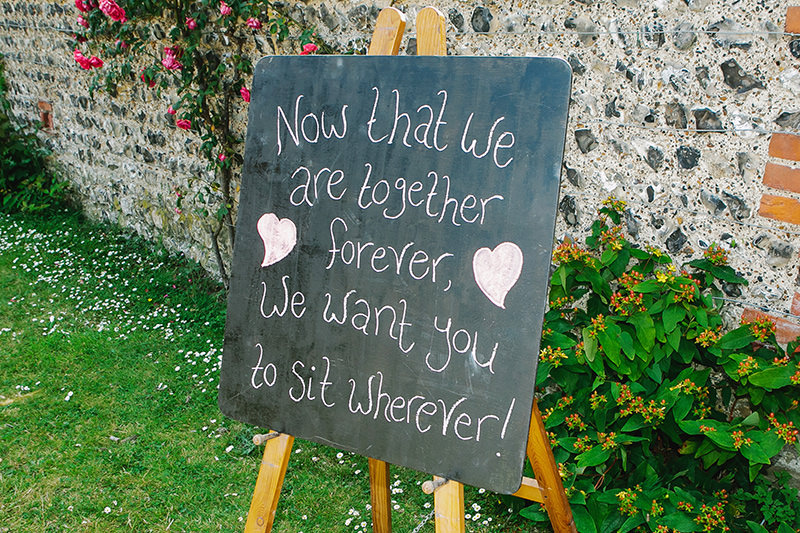 Now that we
are together
forever,
we want you
to sit wherever!